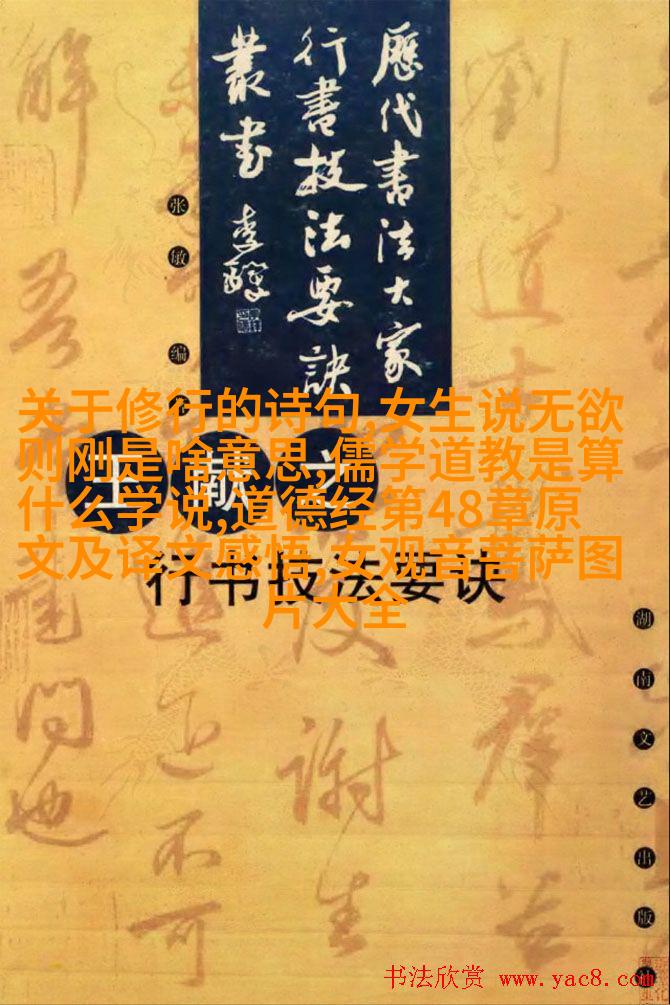 歷代書法大家
行書技法要訣
叢書 李鐸
张敏编
关于修行的诗句,女生说无欲
则刚是啥意思,儒学道教是算
什么学说,道德经第48章原
文及译文感悟,女观音菩萨图
片大全
王献之
行书技法要诀
湖南文艺出版
劉道士
群並
謝生
不可
問也
书法欣赏 www.yac8.com